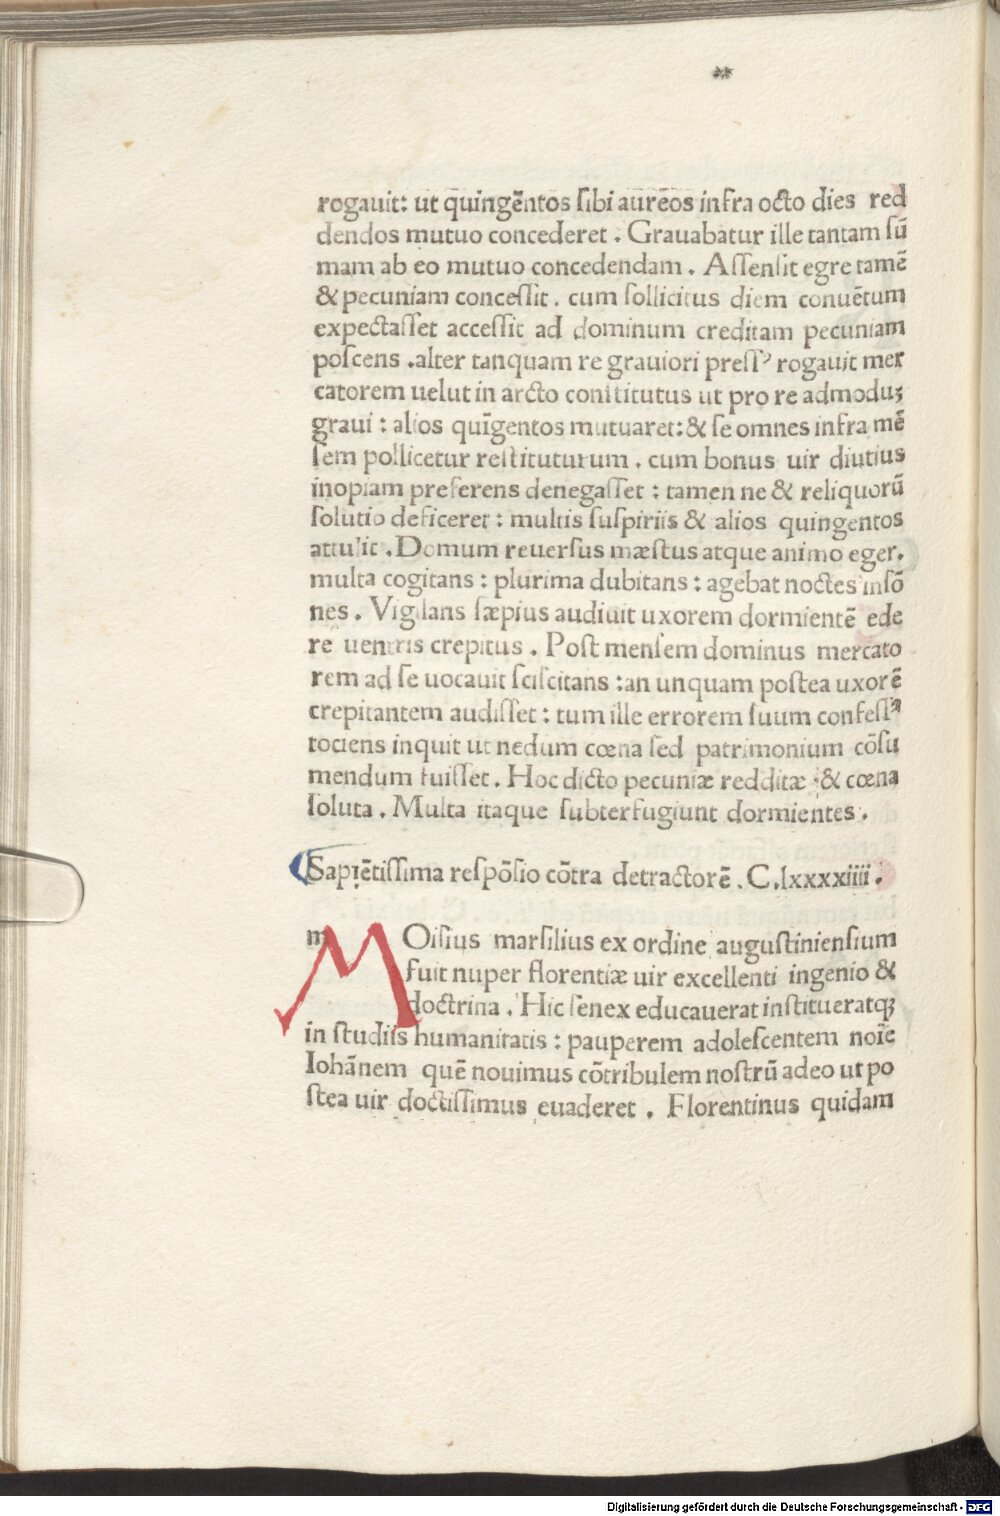 rogauit: ut quingẽntos sibi aureos infra octo dies red
dendos mutuo concederet . Grauabatur ille tantam sũ
mam ab eo mutuo concedendam . Assensit egre tamẽ
& pecuniam concessit . cum sollicitus diem conuẽtum
expectasset accessit ad dominum creditam pecuniam
poscens .alter tanquam re grauiori pressꝰ rogauit mer
catorem uelut in arcto constitutus ut pro re admoduꝫ
graui : alios quĩgentos mutuaret: & se omnes infra mẽ
sem pollicetur restituturum . cum bonus uir diutius
inopiam preferens denegasset : tamen ne & reliquorũ
solutio deficeret : multis suspiriis & alios quingentos
attulit . Domum reuersus mæstus atque animo eger.
multa cogitans : plurima dubitans : agebat noctes insõ
nes . Vigilans sæpius audiuit uxorem dormientẽ ede
re uentris crepitus . Post mensem dominus mercato
rem ad se uocauit sciscitans :an unquam postea uxorẽ
crepitantem audisset : tum ille errorem suum confessꝰ
tociens inquit ut nedum cœna sed patrimonium cõsu
mendum fuisset . Hoc dicto pecuniæ redditæ : & cœna
soluta . Multa itaque subterfugiunt dormientes .
Sapiẽtissima respõsio cõtra detractorẽ . C.lxxxxiiii .
m MOisius marsilius ex ordine augustiniensium
fuit nuper florentiæ uir excellenti ingenio &
doctrina . Hic senex educauerat institueratqꝫ
in studiis humanitatis : pauperem adolescentem noĩe
Iohãnem quẽ nouimus cõtribulem nostrũ adeo ut po
stea uir doctissimus euaderet . Florentinus quidam
Digitalisierung gefördert durch die Deutsche Forschungsgemeinschaft - DFG